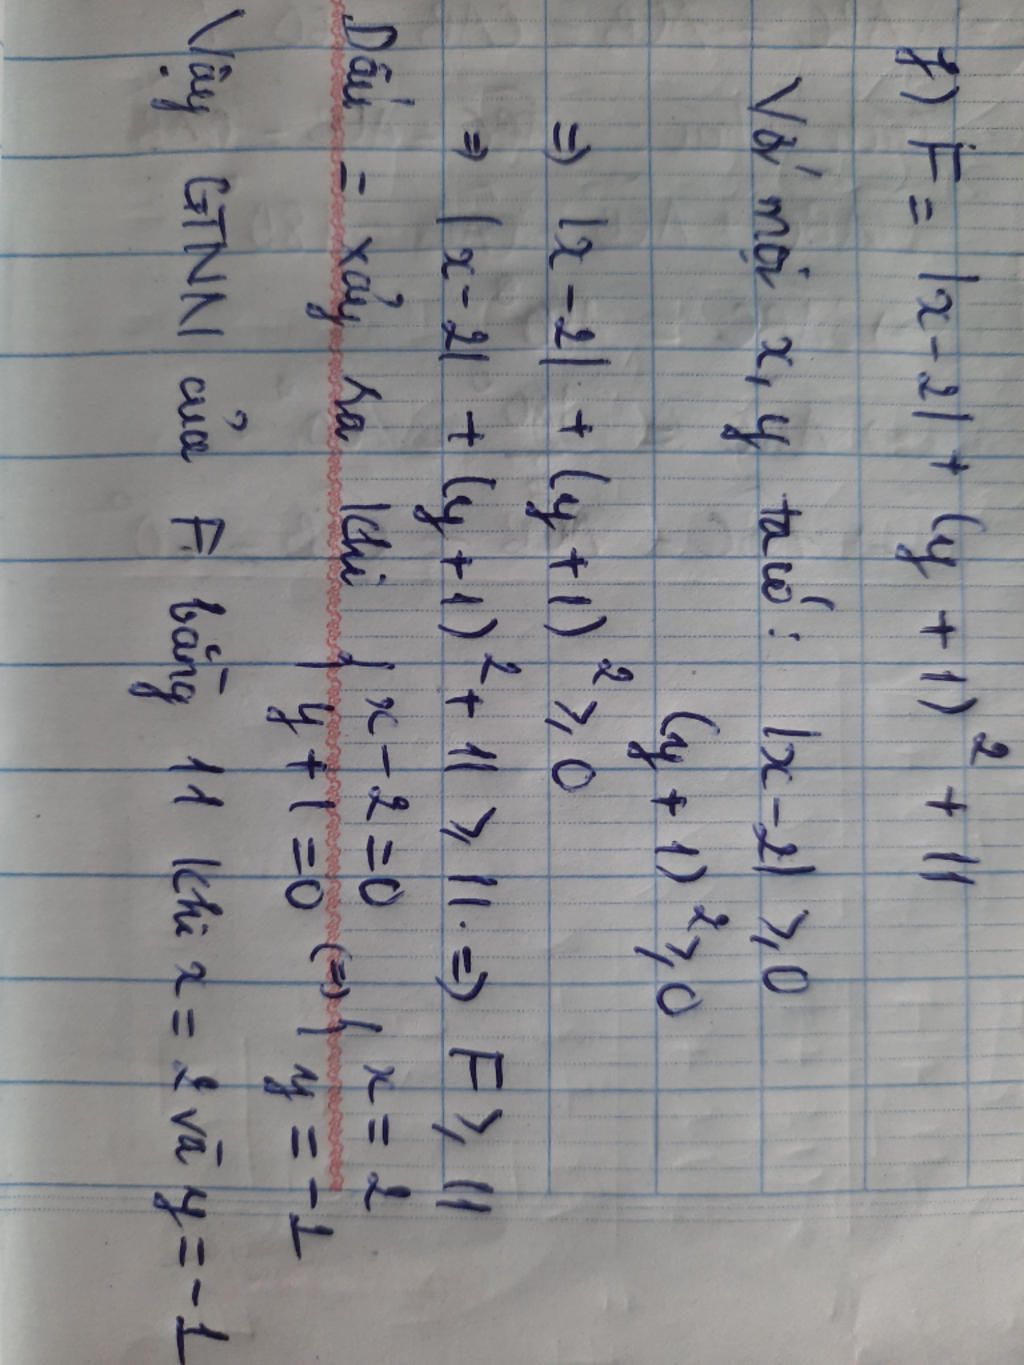 f) F = |x-2| + (y + 1)² + 11
Với mọi x, y ta có: |x-2| ⩾ 0
(y + 1)² ⩾ 0
=> |x-2| + (y + 1)² ⩾ 0
=> |x-2| + (y + 1)² + 11 ⩾ 11. => F ⩾ 11
Dấu = xảy ra khi { x-2=0 (=) { x = 2
y + 1 = 0 y = -1
Vậy GTNN của F bằng 11 khi x = 2 và y = -1